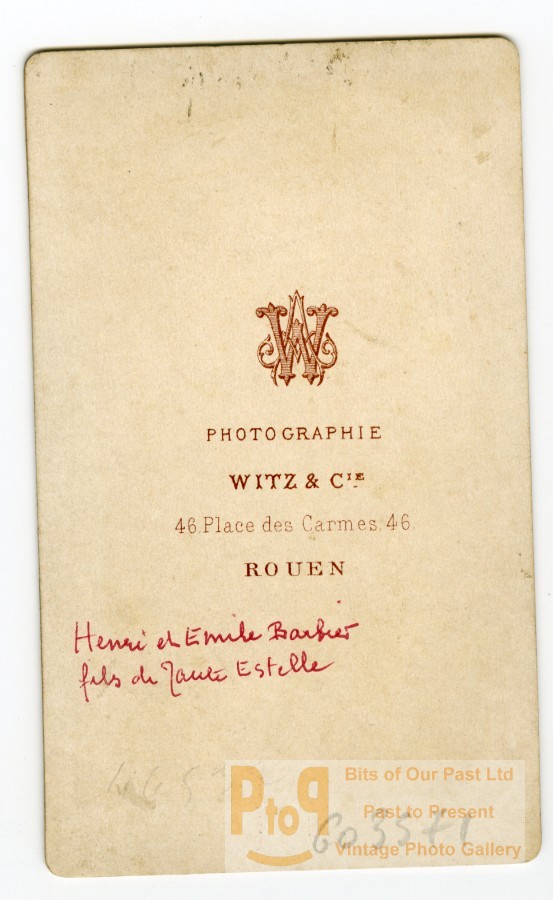 PHOTOGRAPHIE
WITZ & CIE
46, Place des Carmes, 46.
ROUEN
Henri et Emile Barbier
fils de Tante Estelle
PtoP
Bits of Our Past Ltd
Past to Present
Vintage Photo Gallery